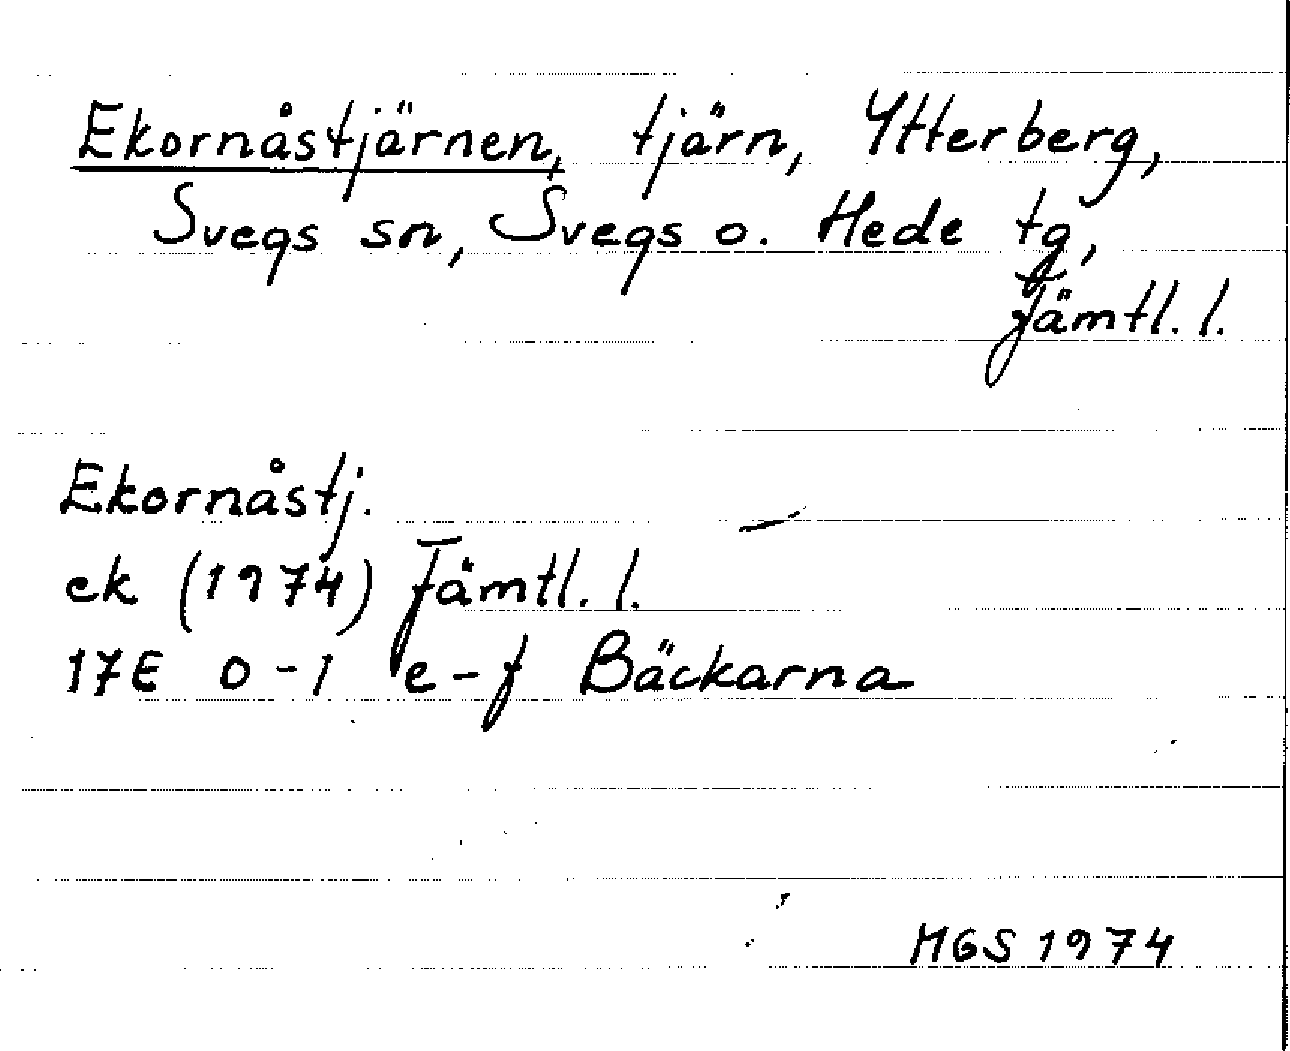 Ekornåstjärnen, tjärn, Ytterberg,
Svegs sn, Svegs o. Hede tg,
Jämtl. l.
Ekornåstj.
ek (1974) Jämtl. l.
17E 0-1 e-f Bäckarna
MGS 1974